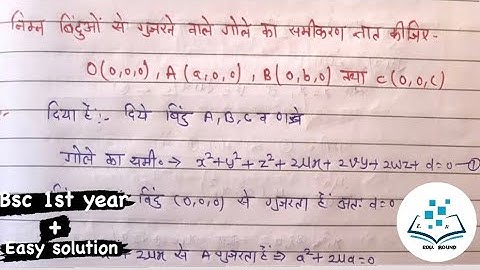 निम्न बिंदुओं से गुजरने वाले गोले का समीकरण ज्ञात कीजिए-
O(0,0,0), A(a,0,0), B(0,b,0) तथा C(0,0,c)
दिया है:- दिये बिंदु A,B,C व O है
गोले का समी० ⇒ x²+y²+z²+2ux+2vy+2wz+d=0 —①
बिंदु (0,0,0) से गुजरता है अतः d=0
Bsc 1st year
+
Easy solution
से A गुजरता है ⇒ a²+2ua=0
EDU ROUND